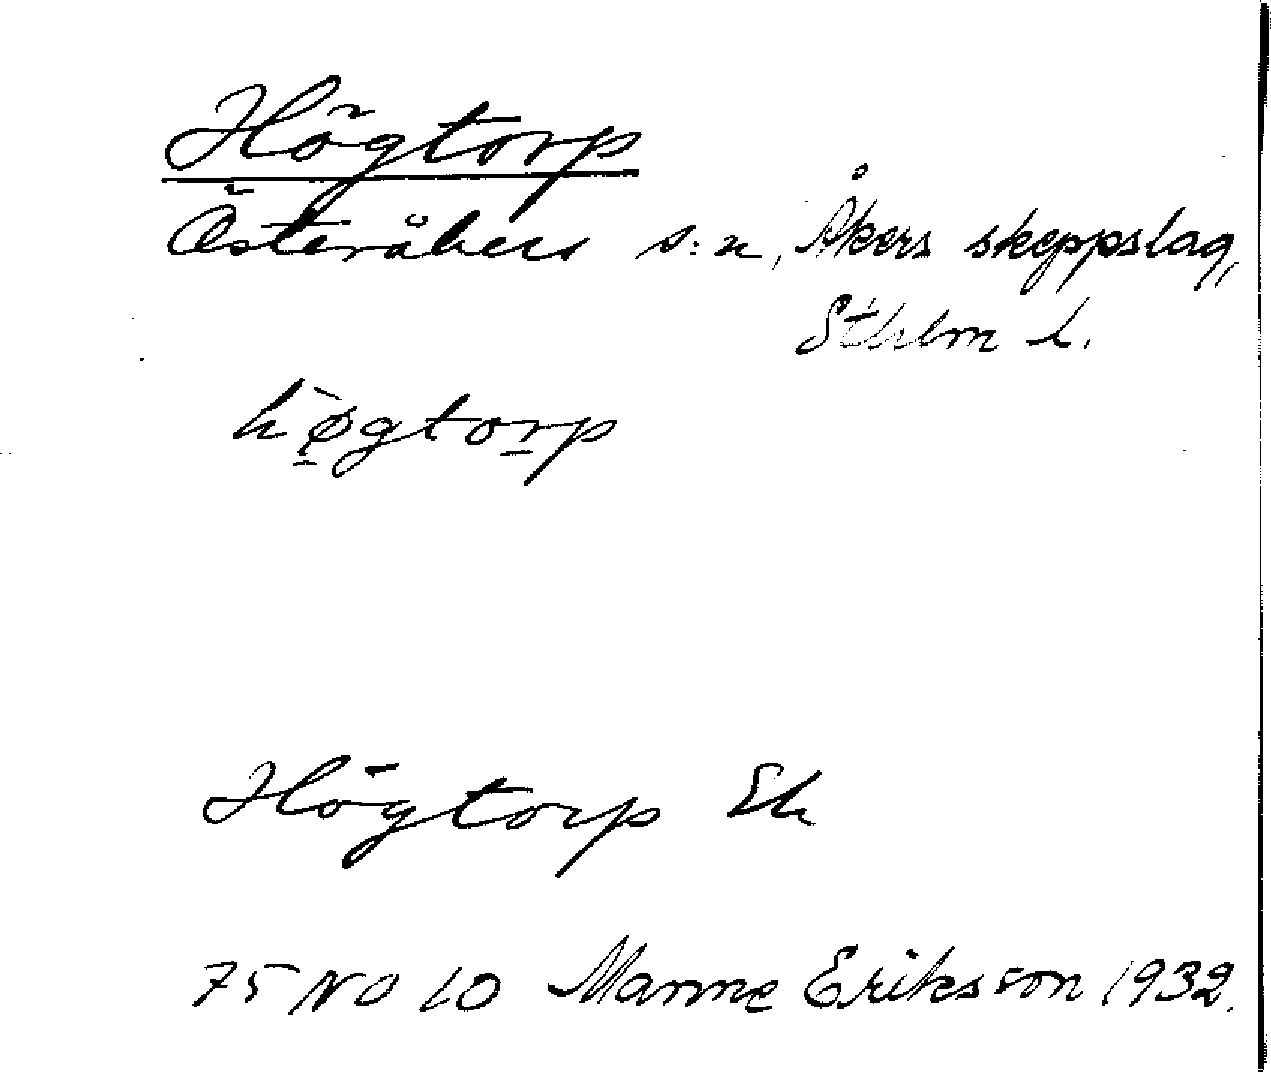 Högtorp
Österåkers s:n, Åkers skeppslag,
Sthlm l.
hø̱gtoṟp
Högtorp Ek
75 NO 10 Manne Eriksson 1932.